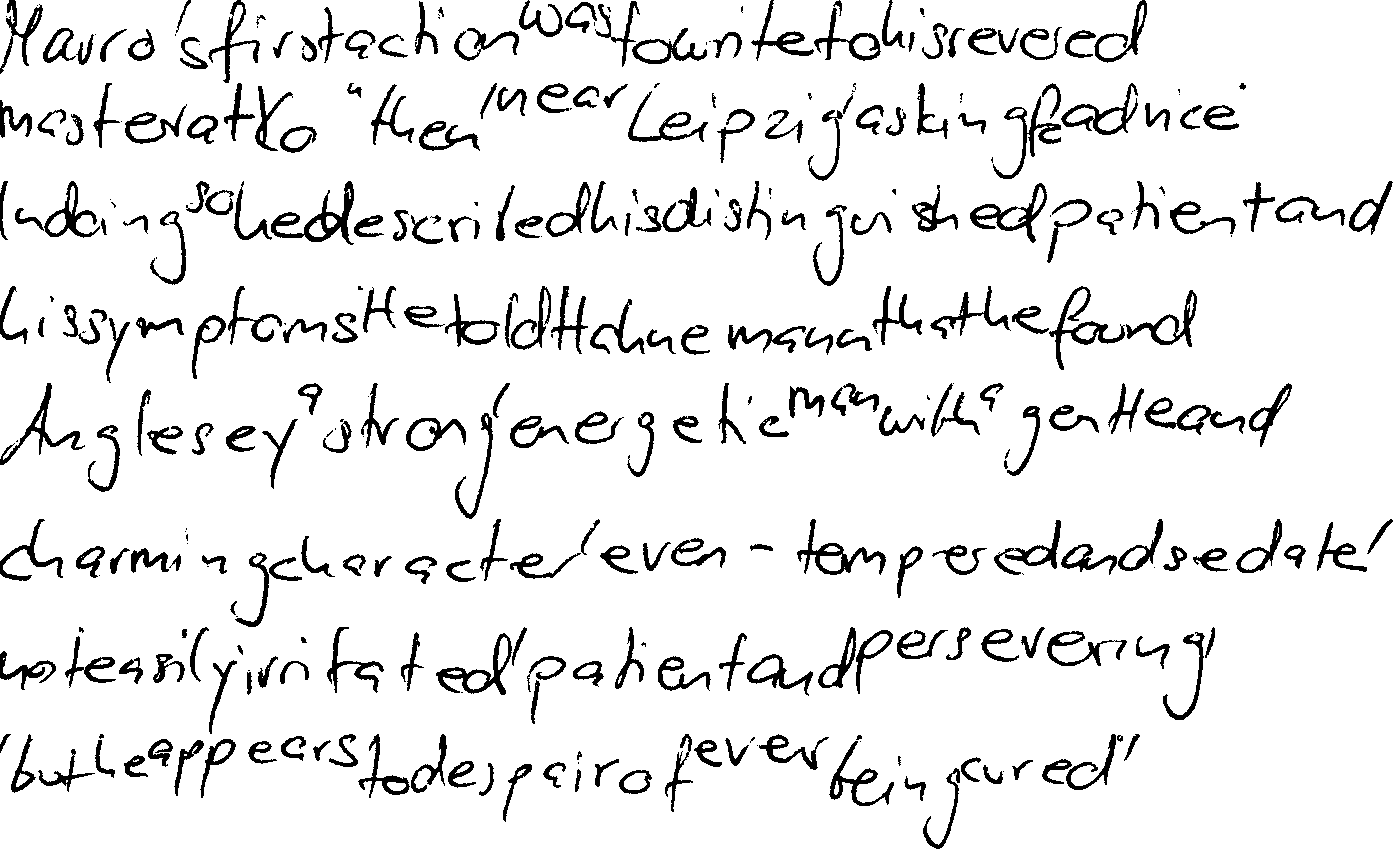 Mauro's first action was to write to his revered
master at Kö " then , near Leipzig , asking for advice .
In doing so he described his distinguished patient and
his symptoms He told Hahnemann that he found
Anglesey a strong , energetic man with a gentle and
charming character , even - tempered and sedate ,
not easily irritated , patient and persevering ,
' but he appears to despair of ever being cured "